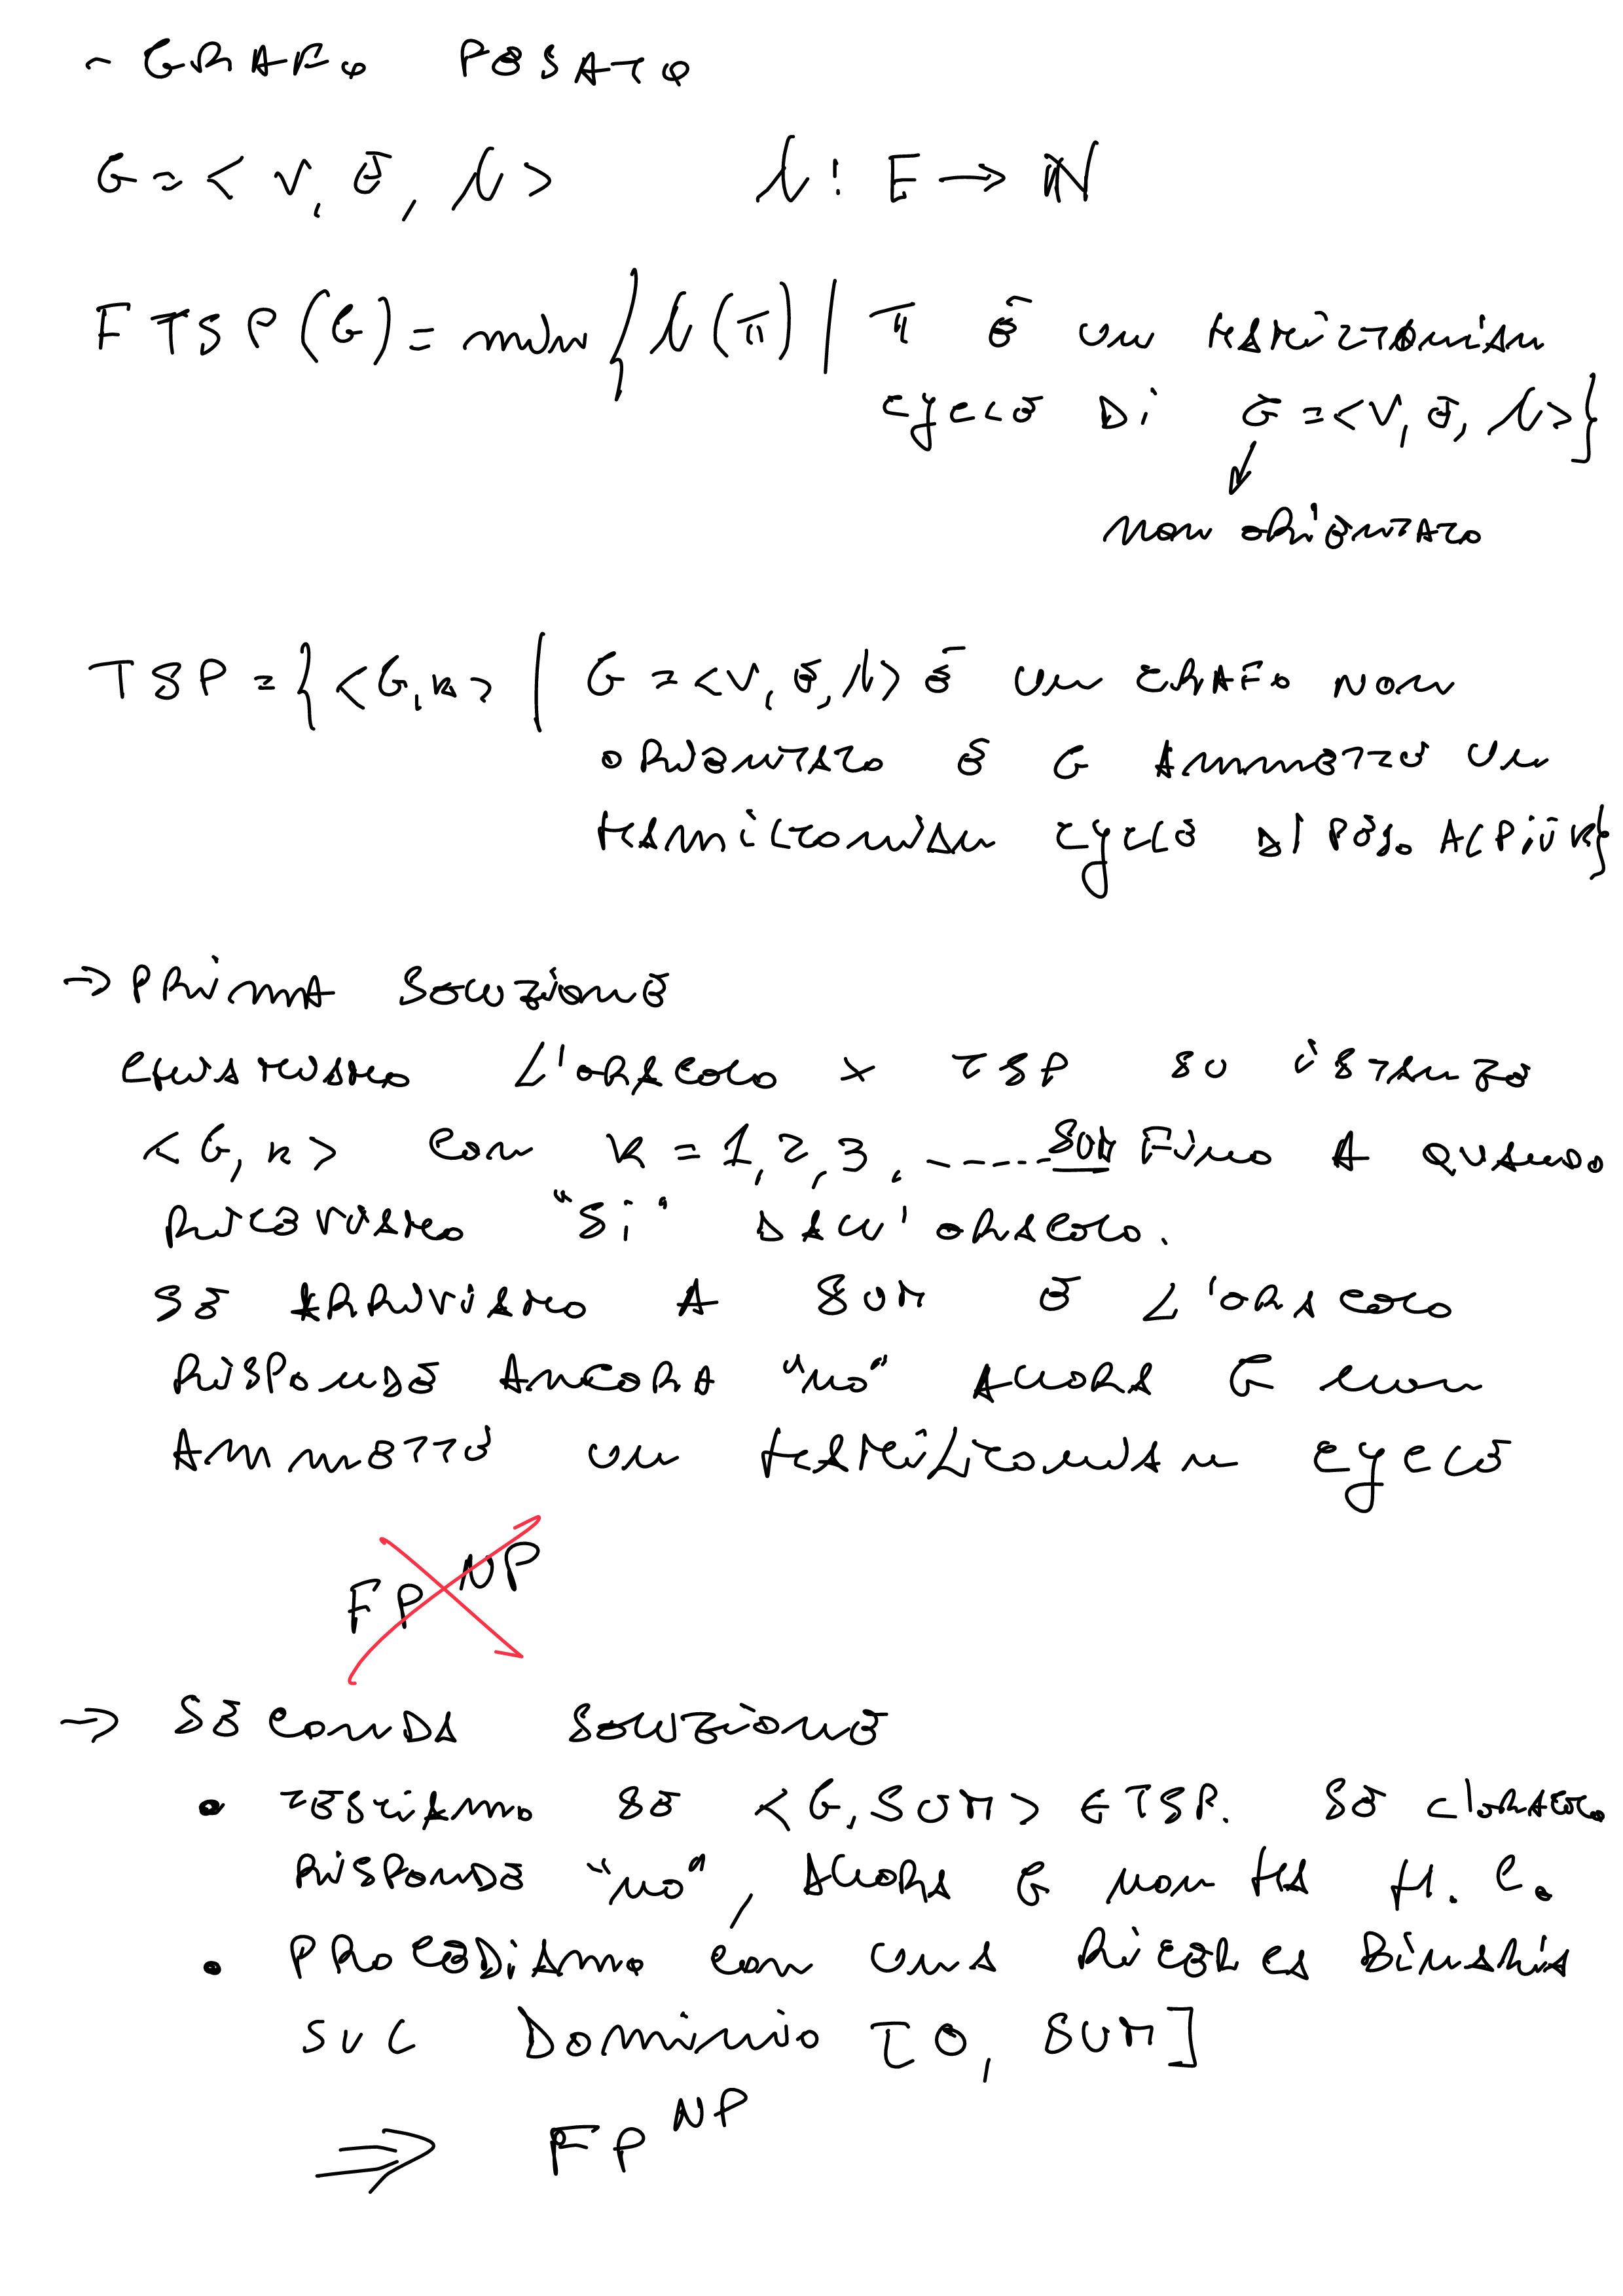 - GRAFO PESATO
G = < V, E, λ > λ : E → ℕ
FTSP(G) = min { λ(π) | π È un HAMILTONIAN
CYCLE DI G = <V, E, λ> }
NON ORIENTATO
TSP = { <G, k> | G = <V, E, λ> È UN GRAFO NON
ORIENTATO E G AMMETTE UN
HAMILTONIAN CYCLE DI PESO AL PIÙ K }
→ PRIMA SOLUZIONE
CHIAMIAMO L'ORACOLO x TSP SU ISTANZE
<G, k> CON K = 1, 2, 3, ------ SUM FINO A QUANDO
RICEVIAMO "SI" DALL'ORACOLO.
SE ARRIVIAMO A SUM E L'ORACOLO
RISPONDE ANCORA "NO" ALLORA G NON
AMMETTE UN HAMILTONIAN CYCLE
FP^NP
→ SECONDA SOLUZIONE
• TESTIAMO SE <G, SUM> ∈ TSP. SE L'ORACOLO
RISPONDE "NO", ALLORA G NON HA H. C.
• PROCEDIAMO CON UNA RICERCA BINARIA
SUL DOMINIO [0, SUM]
⇒ FP^NP